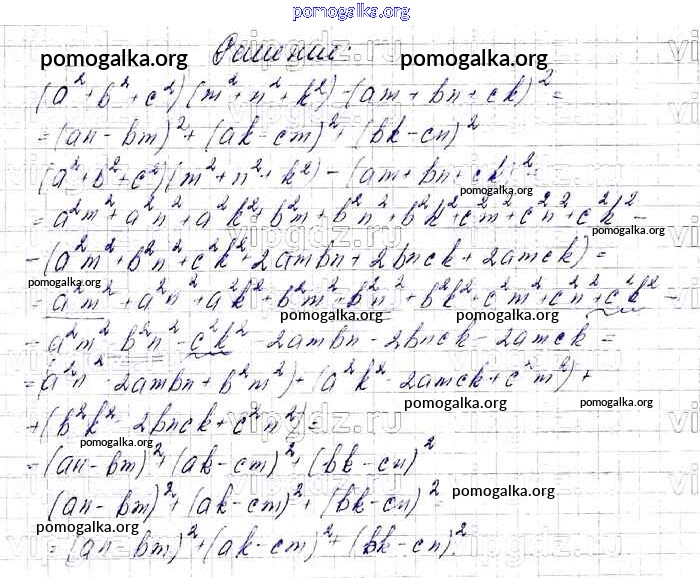 pomogalka.org
pomogalka.org Решение: pomogalka.org
(a² + b² + c²)(m² + n² + k²) - (am + bn + ck)² =
= (an - bm)² + (ak - cm)² + (bk - cn)²
(a² + b² + c²)(m² + n² + k²) - (am + bn + ck)² =
pomogalka.org
= a²m² + a²n² + a²k² + b²m² + b²n² + b²k² + c²m² + c²n² + c²k² -
pomogalka.org
- (a²m² + b²n² + c²k² + 2ambn + 2bnck + 2amck) =
pomogalka.org pomogalka.org
= a²m² + a²n² + a²k² + b²m² + b²n² + b²k² + c²m² + c²n² + c²k² -
pomogalka.org pomogalka.org
- a²m² - b²n² - c²k² - 2ambn - 2bnck - 2amck =
= (a²n² - 2ambn + b²m²) + (a²k² - 2amck + c²m²) +
pomogalka.org pomogalka.org
+ (b²k² - 2bnck + c²n²) =
pomogalka.org
= (an - bm)² + (ak - cm)² + (bk - cn)²
(an - bm)² + (ak - cm)² + (bk - cn)² =
pomogalka.org
pomogalka.org
= (an - bm)² + (ak - cm)² + (bk - cn)².
vipgdz.ru